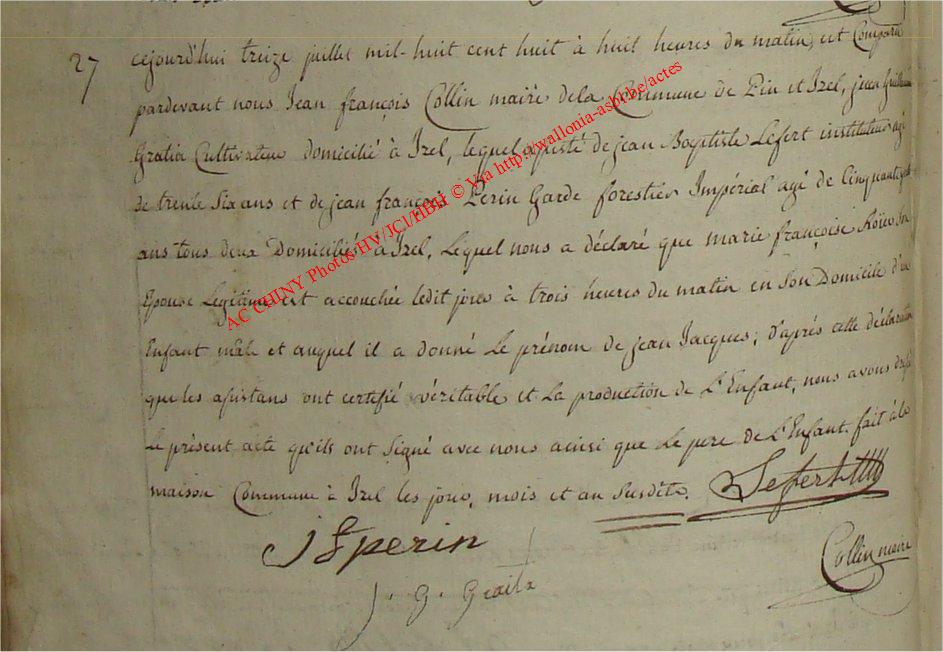 27
cejourd'hui treize juillet mil-huit cent huit à huit heures du matin, est Comparu
pardevant nous Jean françois Collin maire dela Commune de Pin et Izel, jean Guillaume
Gratia Cultivateur domicilié à Izel, lequel assisté de jean Baptiste Lefert instituteur agé
de trente Six ans et de jean françois Perin Garde forestier Impérial agé de Cinquante
ans tous deux Domiciliés à Izel, Lequel nous a déclaré que marie françoise Son
Epouse Legitime est accouchée ledit jour à trois heures du matin en Son Domicile d'un
Enfant mâle et auquel il a donné Le prénom de jean Jacques; d'après cette déclaration
que les assistans ont certifié véritable et La production de L'Enfant, nous avons dressé
Le présent acte qu'ils ont Signé avec nous ainsi que Le pere de L'Enfant. fait à la
maison Commune à Izel les jour, mois et an Susdits.
Lefert
JF perin
Collin maire
J. G. Gratia
AC CHINY Photos HV/JCI/HBH © Via http://wallonia-asbl.be/actes